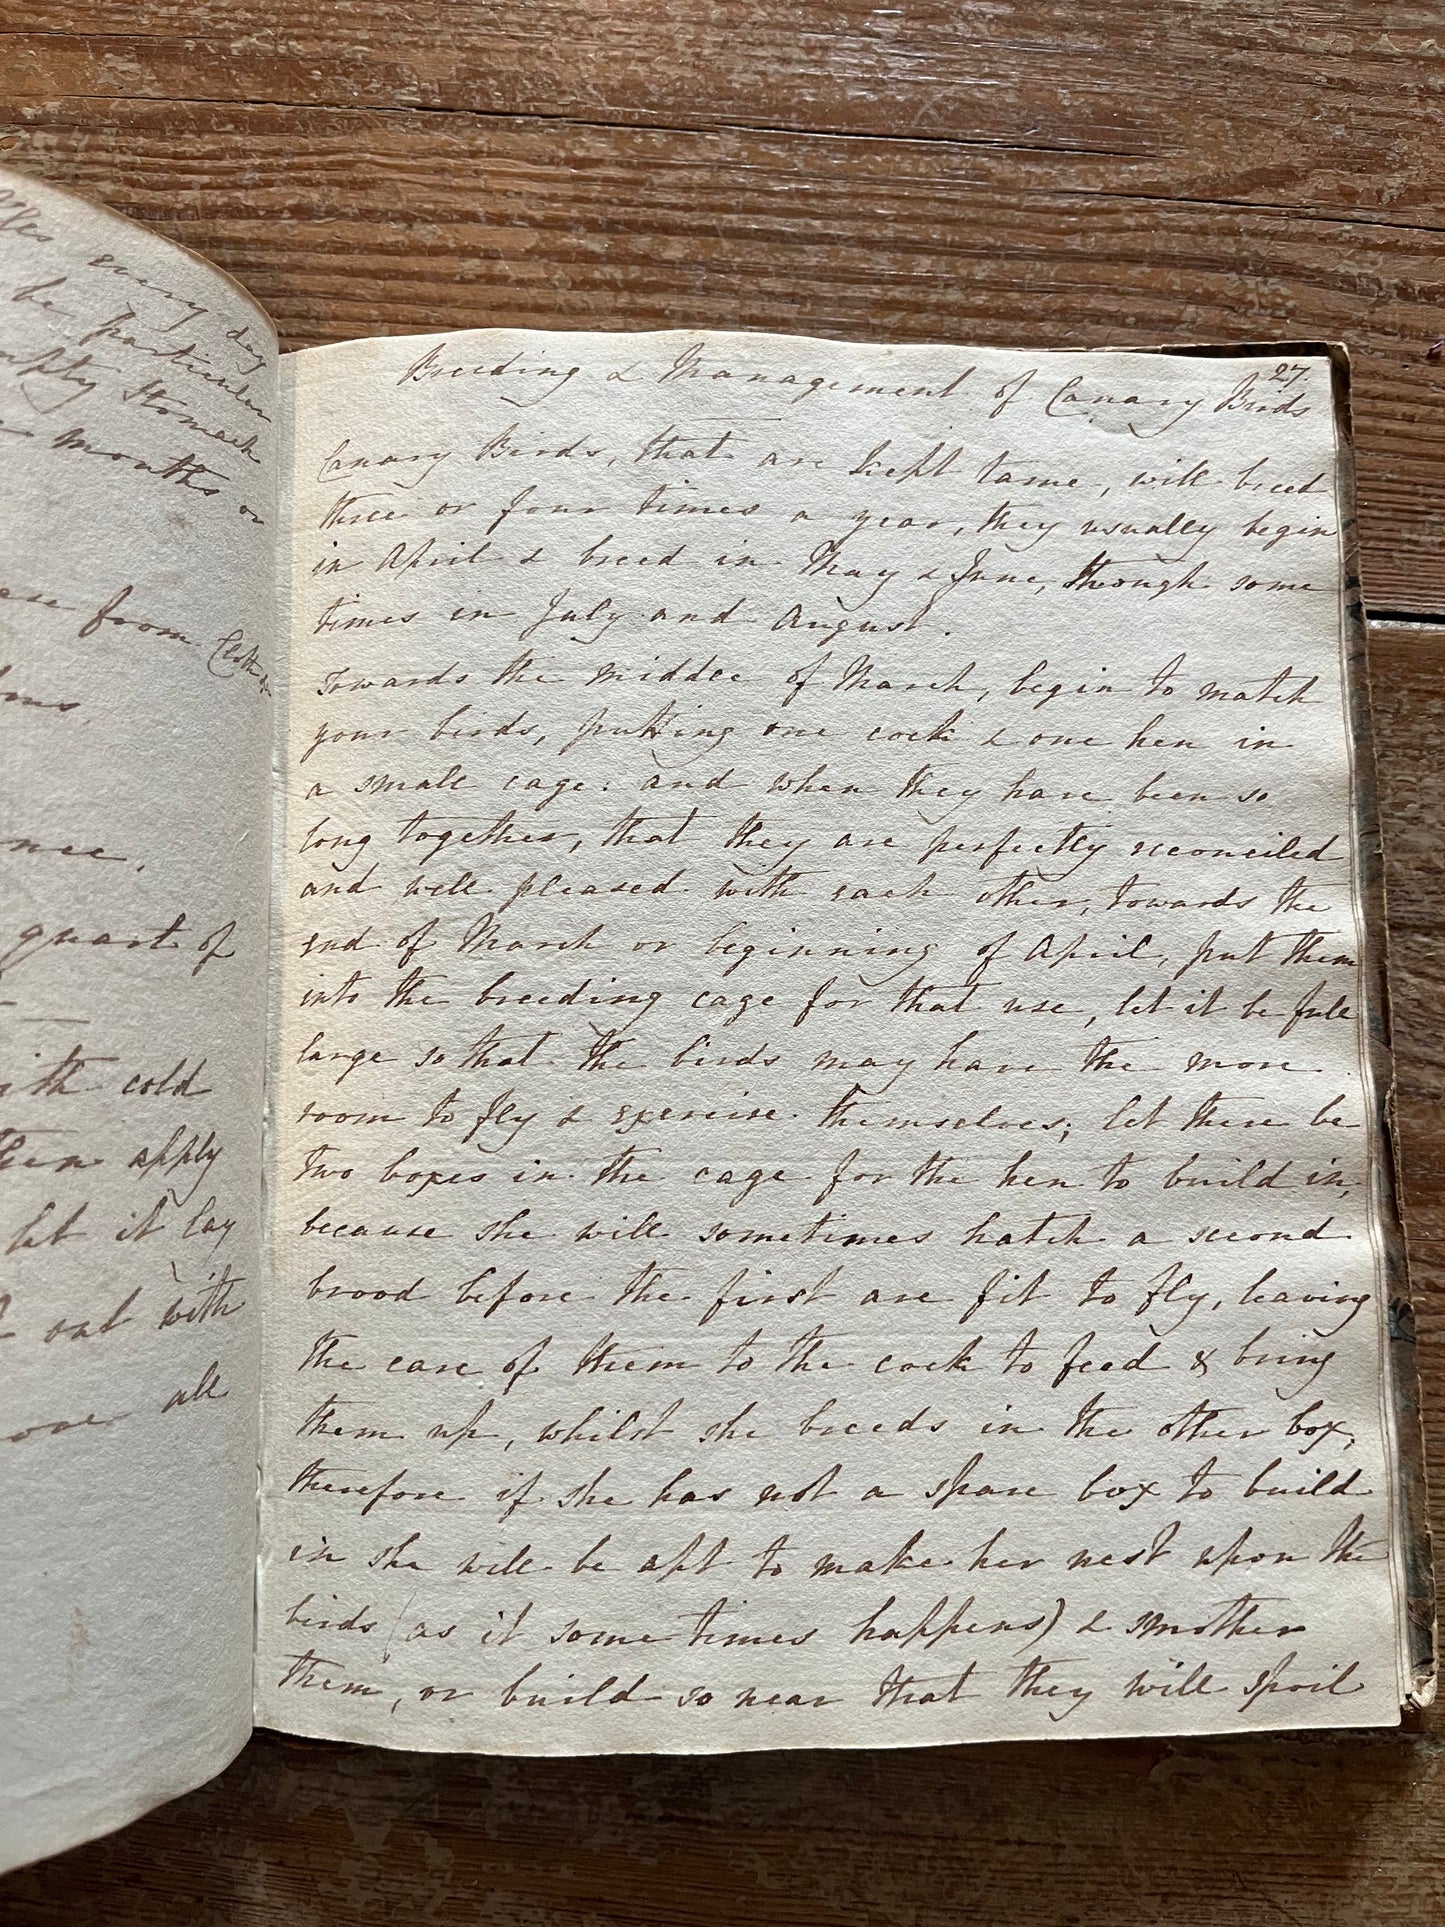 every day
be particular
empty stomach
months or
from Cloth
quart of
with cold
then apply
let it lay
out with
all
27.
Breeding & Management of Canary Birds
Canary Birds, that are kept tame, will breed
three or four times a year, they usually begin
in April & breed in May & June, though some
times in July and August.
Towards the middle of March, begin to match
your birds, putting one cock & one hen in
a small cage: and when they have been so
long together, that they are perfectly reconciled
and well pleased with each other, towards the
end of March or beginning of April, put them
into the breeding cage for that use, let it be full
large so that the birds may have the more
room to fly & exercise themselves; let there be
two boxes in the cage for the hen to build in,
because she will sometimes hatch a second
brood before the first are fit to fly, leaving
the care of them to the cock to feed & bring
them up, whilst she breeds in the other box,
therefore if she has not a spare box to build
in she will be apt to make her nest upon the
birds (as it some times happens) & smother
them, or build so near that they will spoil